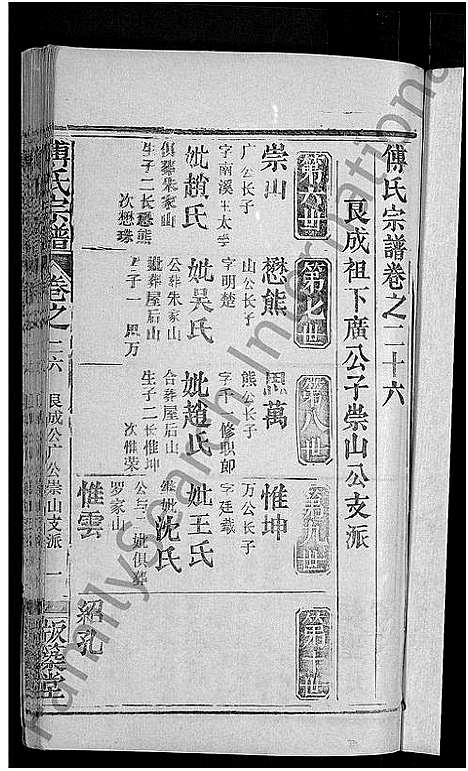 傅氏宗譜卷之二十六
艮成祖下廣公子崇山公支派
第六世
第七世
第八世
第九世
第十世
崇山
广公长子
字南溪王太学
妣趙氏
俱葬朱家山
生子二长懋熊
次懋珠
懋熊
山公长子
字明楚
妣吴氏
公葬朱家山
妣葬屋后山
生子一思万
思萬
熊公长子
修职郎
妣趙氏
合葬屋后山
生子二长惟坤
次惟荣
惟坤
万公长子
字廷载
妣王氏
继妣沈氏
公与妣俱葬
罗家山
惟雲
紹孔
傅氏宗譜
卷之二六
艮成公广公崇山支派
一
版築堂
Familysearch International